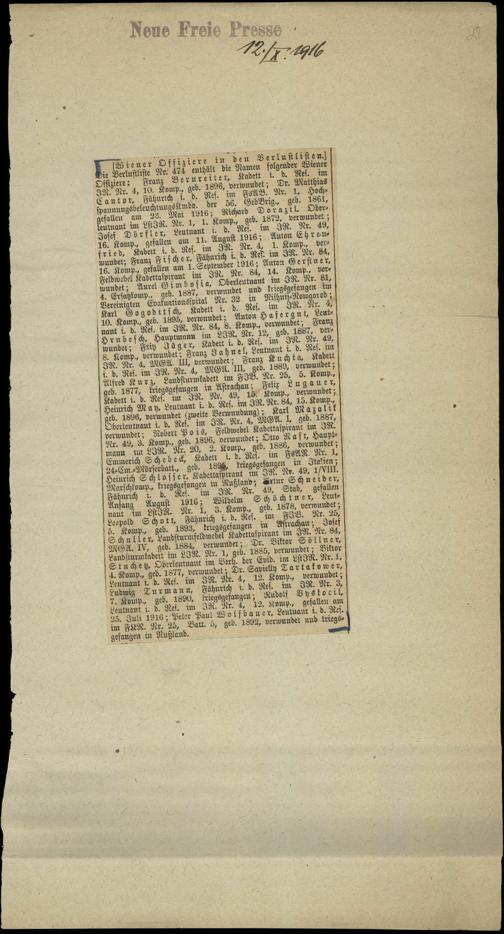 Neue Freie Presse
12./X. 1916
[Wiener Offiziere in den Verlustlisten.]
Die Verlustliste Nr. 474 enthält die Namen folgender Wiener
Offiziere: Franz Bernreiter, Kadett i. d. Res. im
IR. Nr. 4, 10. Komp., geb. 1896, verwundet; Dr. Matthias
Cantor, Fähnrich i. d. Res. im FeAB. Nr. 1, Hoch-
spannungsbeleuchtungskmdo. der 56. GebBrig., geb. 1861,
gefallen am 22. Mai 1916; Richard Dorazil, Ober-
leutnant im LstIR. Nr. 1, 1. Komp., geb. 1872, verwundet;
Josef Dörfler, Leutnant i. d. Res. im IR. Nr. 49,
16. Komp., gefallen am 11. August 1916; Anton Ehren-
fried, Kadett i. d. Res. im IR. Nr. 4, 1. Komp., ver-
wundet; Franz Fischer, Fähnrich i. d. Res. im IR. Nr. 84,
16. Komp., gefallen am 1. September 1916; Anton Gerstner,
Feldwebel Kadettaspirant im IR. Nr. 84, 14. Komp., ver-
wundet; Aurel Oberleutnant im IR. Nr. 81,
4. Ersatzkomp., geb. 1887, verwundet und kriegsgefangen im
Vereinigten Evakuationsspital Nr. 32 in Nishnij-Nowgorod;
Karl Gogoditsch, Kadett i. d. Res. im IR. Nr. 4,
10. Komp., geb. 1895, verwundet; Anton Leut-
nant i. d. Res. im IR. Nr. 84, 8. Komp., verwundet; Franz
Hrubesch, Hauptmann im LIR. Nr. 12, geb. 1887, ver-
wundet; Fritz Jäger, Kadett i. d. Res. im IR. Nr. 49,
8. Komp., verwundet; Franz Jahnel, Leutnant i. d. Res. im
IR. Nr. 4, MGA. III, verwundet; Franz Kuchta, Kadett
i. d. Res. im IR. Nr. 4, MGA. III, geb. 1889, verwundet;
Alfred Kurz, Landsturmkadett im FJB. Nr. 25, 5. Komp.,
geb. 1877, kriegsgefangen in Astrachan; Felix Lugauer,
Kadett i. d. Res. im IR. Nr. 49, 15. Komp., verwundet;
Heinrich May, Leutnant i. d. Res. im IR. Nr. 84, 15. Komp.,
geb. 1896, verwundet (zweite Verwundung); Karl Mazalit
Oberleutnant i. d. Res. im IR. Nr. 4, MGA. I, geb. 1887,
verwundet; Robert Pois, Feldwebel Kadettaspirant im IR.
Nr. 49, 3. Komp., geb. 1896, verwundet; Otto Haupt-
mann im IR. Nr. 20, 2. Komp., geb. 1886, verwundet;
Emmerich Schebeck, Kadett i. d. Res. im FsAR. Nr. 1,
24-Cm.-Mörserbatt., geb. 1896, kriegsgefangen in Italien;
Heinrich Schlosser, Kadettaspirant im IR. Nr. 49, 1/VIII.
Marschkomp., kriegsgefangen in Rußland; Artur Schneider,
Fähnrich i. d. Res. im IR. Nr. 49, Stab, gefallen
Anfang August 1916; Wilhelm Schöchtner, Leut-
nant im LstIR. Nr. 1, 3. Komp., geb. 1878, verwundet;
Leopold Schott, Fähnrich i. d. Res. im FJB. Nr. 25,
5. Komp., geb. 1893, kriegsgefangen in Astrachan; Josef
Schuller, Landsturmfeldwebel Kadettaspirant im IR. Nr. 84,
MGA. IV, geb. 1884, verwundet; Dr. Viktor Söllner,
Landsturmkadett im LIR. Nr. 1, geb. 1885, verwundet; Viktor
Stuchetz, Oberleutnant im Verh. der Evid. im LstIR. Nr. 1,
4. Komp., geb. 1877, verwundet; Dr. Tartakower,
Leutnant i. d. Res. im IR. Nr. 4, 12. Komp., verwundet;
Ludwig Turmann, Fähnrich i. d. Res. im IR. Nr. 3,
7. Komp., geb. 1890, kriegsgefangen; Rudolf Byslocil,
Leutnant i. d. Res. im IR. Nr. 4, 12. Komp., gefallen am
25. Juli 1916; Peter Paul Wolfbauer, Leutnant i. d. Res.
im FKR. Nr. 25, Batt. 5, geb. 1892, verwundet und kriegs-
gefangen in Rußland.